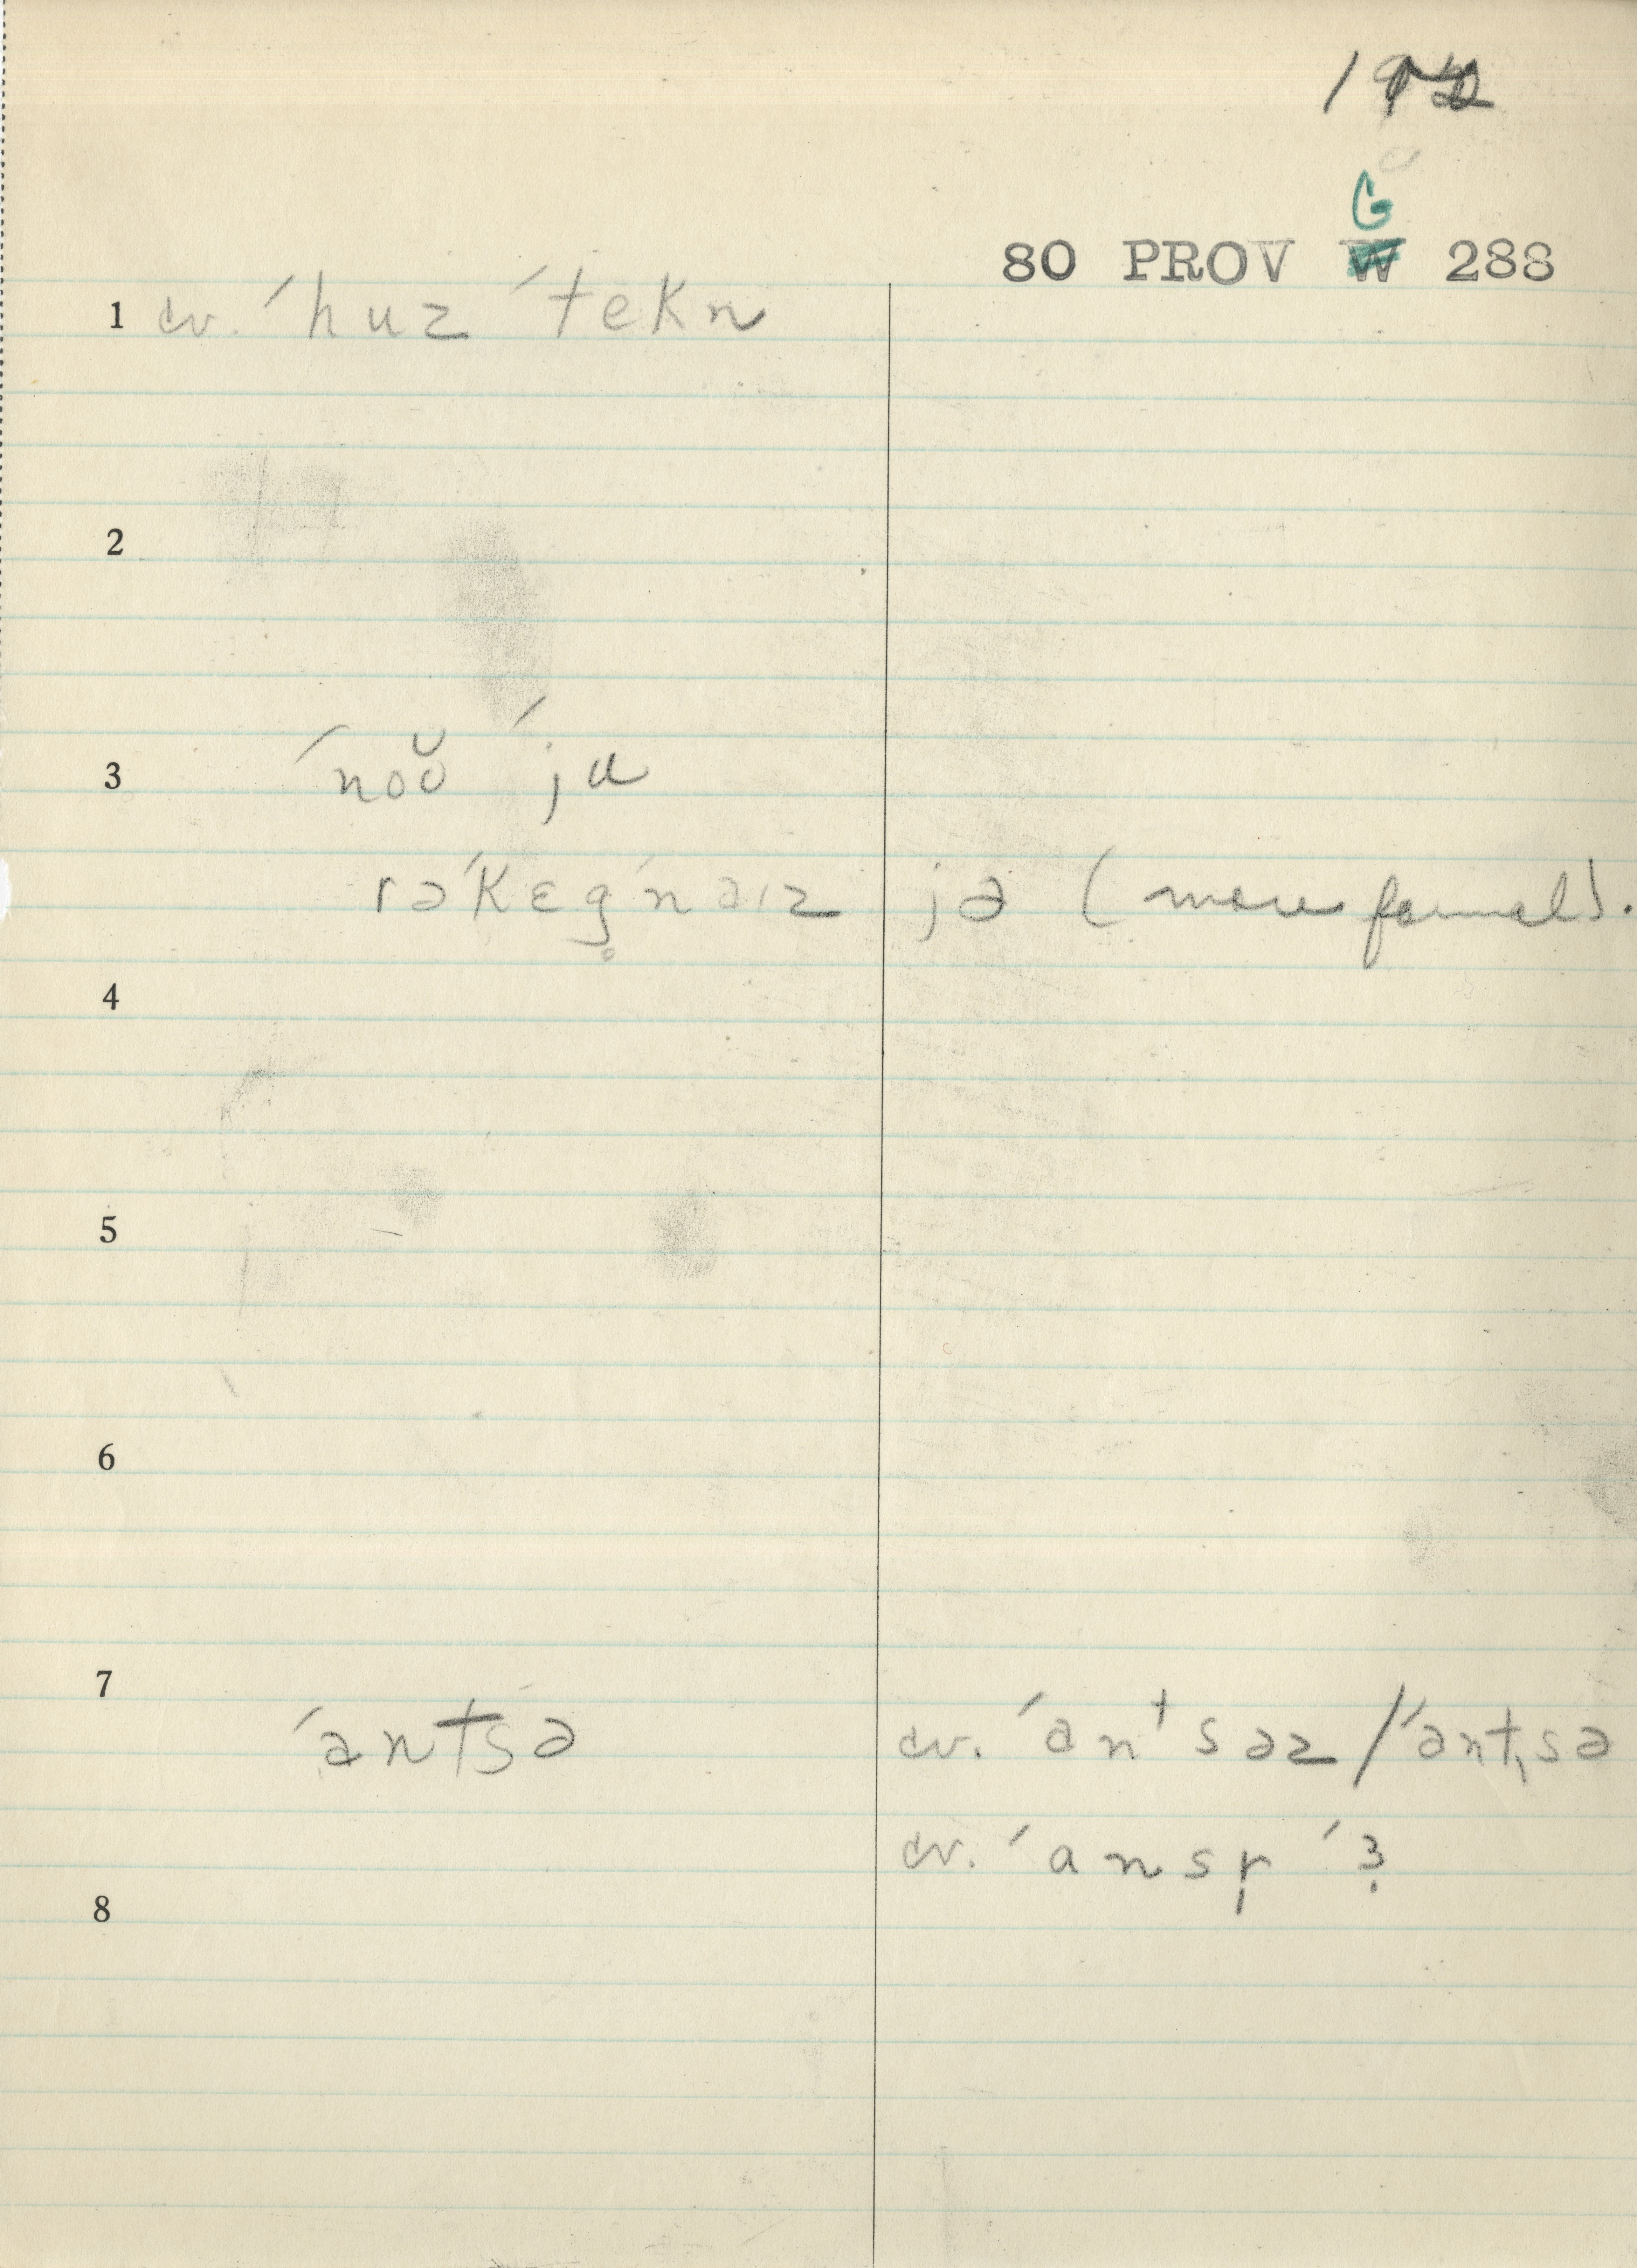 80 PROV G 288
1 cv. ˊhuz ˊtekn
2
3 ˊnoŭ ˊju
rəˊkɛg̥naɪz jə (more formal).
4
5
6
7
ˊantsə cv. ˊanᵗsəz / ˊantsə
cv. ˊansr̩ ˊ
8